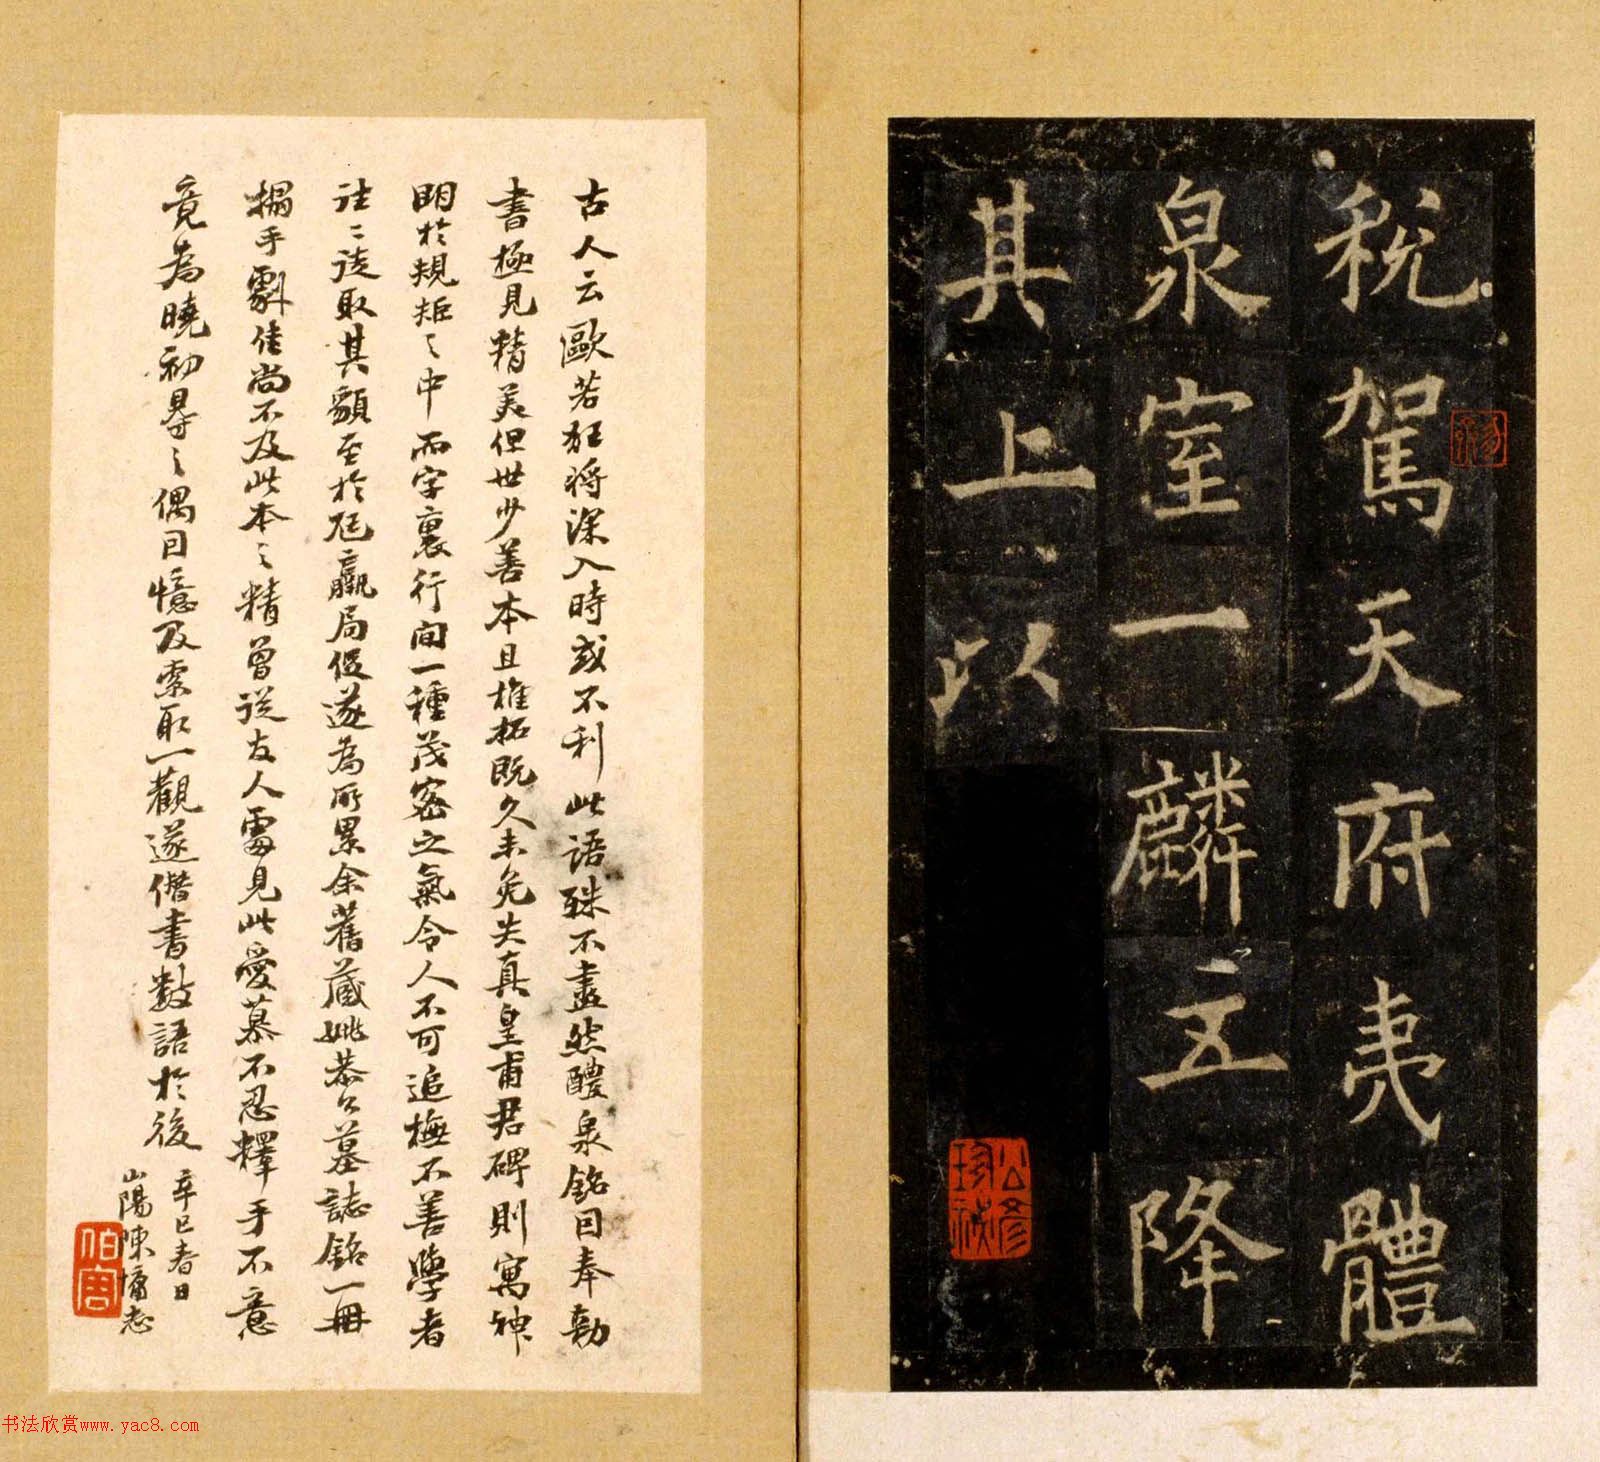 稅駕天府夷體
泉室一麟五降
其上以
古人云歐若狂將深入時或不利此語殊不盡然醴泉銘因奉勅
書極見精美但世少善本且椎拓既久未免失真皇甫君碑則寓神
明於規矩之中而字裏行間一種茂密之氣令人不可追橅不善學者
往往徒取其貌至於尪羸局促遂為所累余舊藏姚恭公墓誌銘一冊
搨手劇佳尚不及此本之精曾從友人處見此愛慕不忍釋手不意
竟為曉初得之偶因憶及索取一觀遂僭書數語於後
辛巳春日
山陽陳慵志
伯唐
公修
珍秘
书法欣赏www.yac8.com